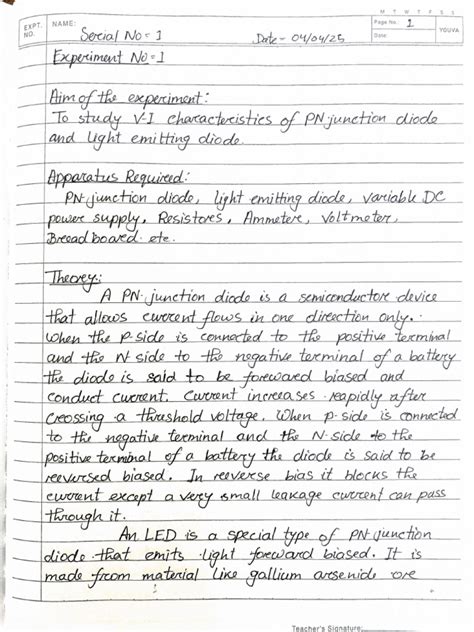 M T W T F S S
EXPT. NO. NAME: Page No.: 1 YOUVA
Date:
Serial No = 1 Date = 04/04/25
Experiment No = 1
Aim of the experiment:
To study V-I characteristics of PN junction diode
and light emitting diode.
Apparatus Required:
PN-junction diode, light emitting diode, variable DC
power supply, Resistors, Ammeter, Voltmeter,
Breadboard etc.
Theory:
A PN-junction diode is a semiconductor device
that allows current flows in one direction only.
When the p-side is connected to the positive terminal
and the N side to the negative terminal of a battery
the diode is said to be forward biased and
conduct current. Current increases rapidly after
crossing a threshold voltage. When p-side is connected
to the negative terminal and the N-side to the
positive terminal of a battery the diode is said to be
reversed biased. In reverse bias it blocks the
current except a very small leakage current can pass
through it.
An LED is a special type of PN-junction
diode that emits light forward biased. It is
made from material like gallium arsenide or
Teacher's Signature: